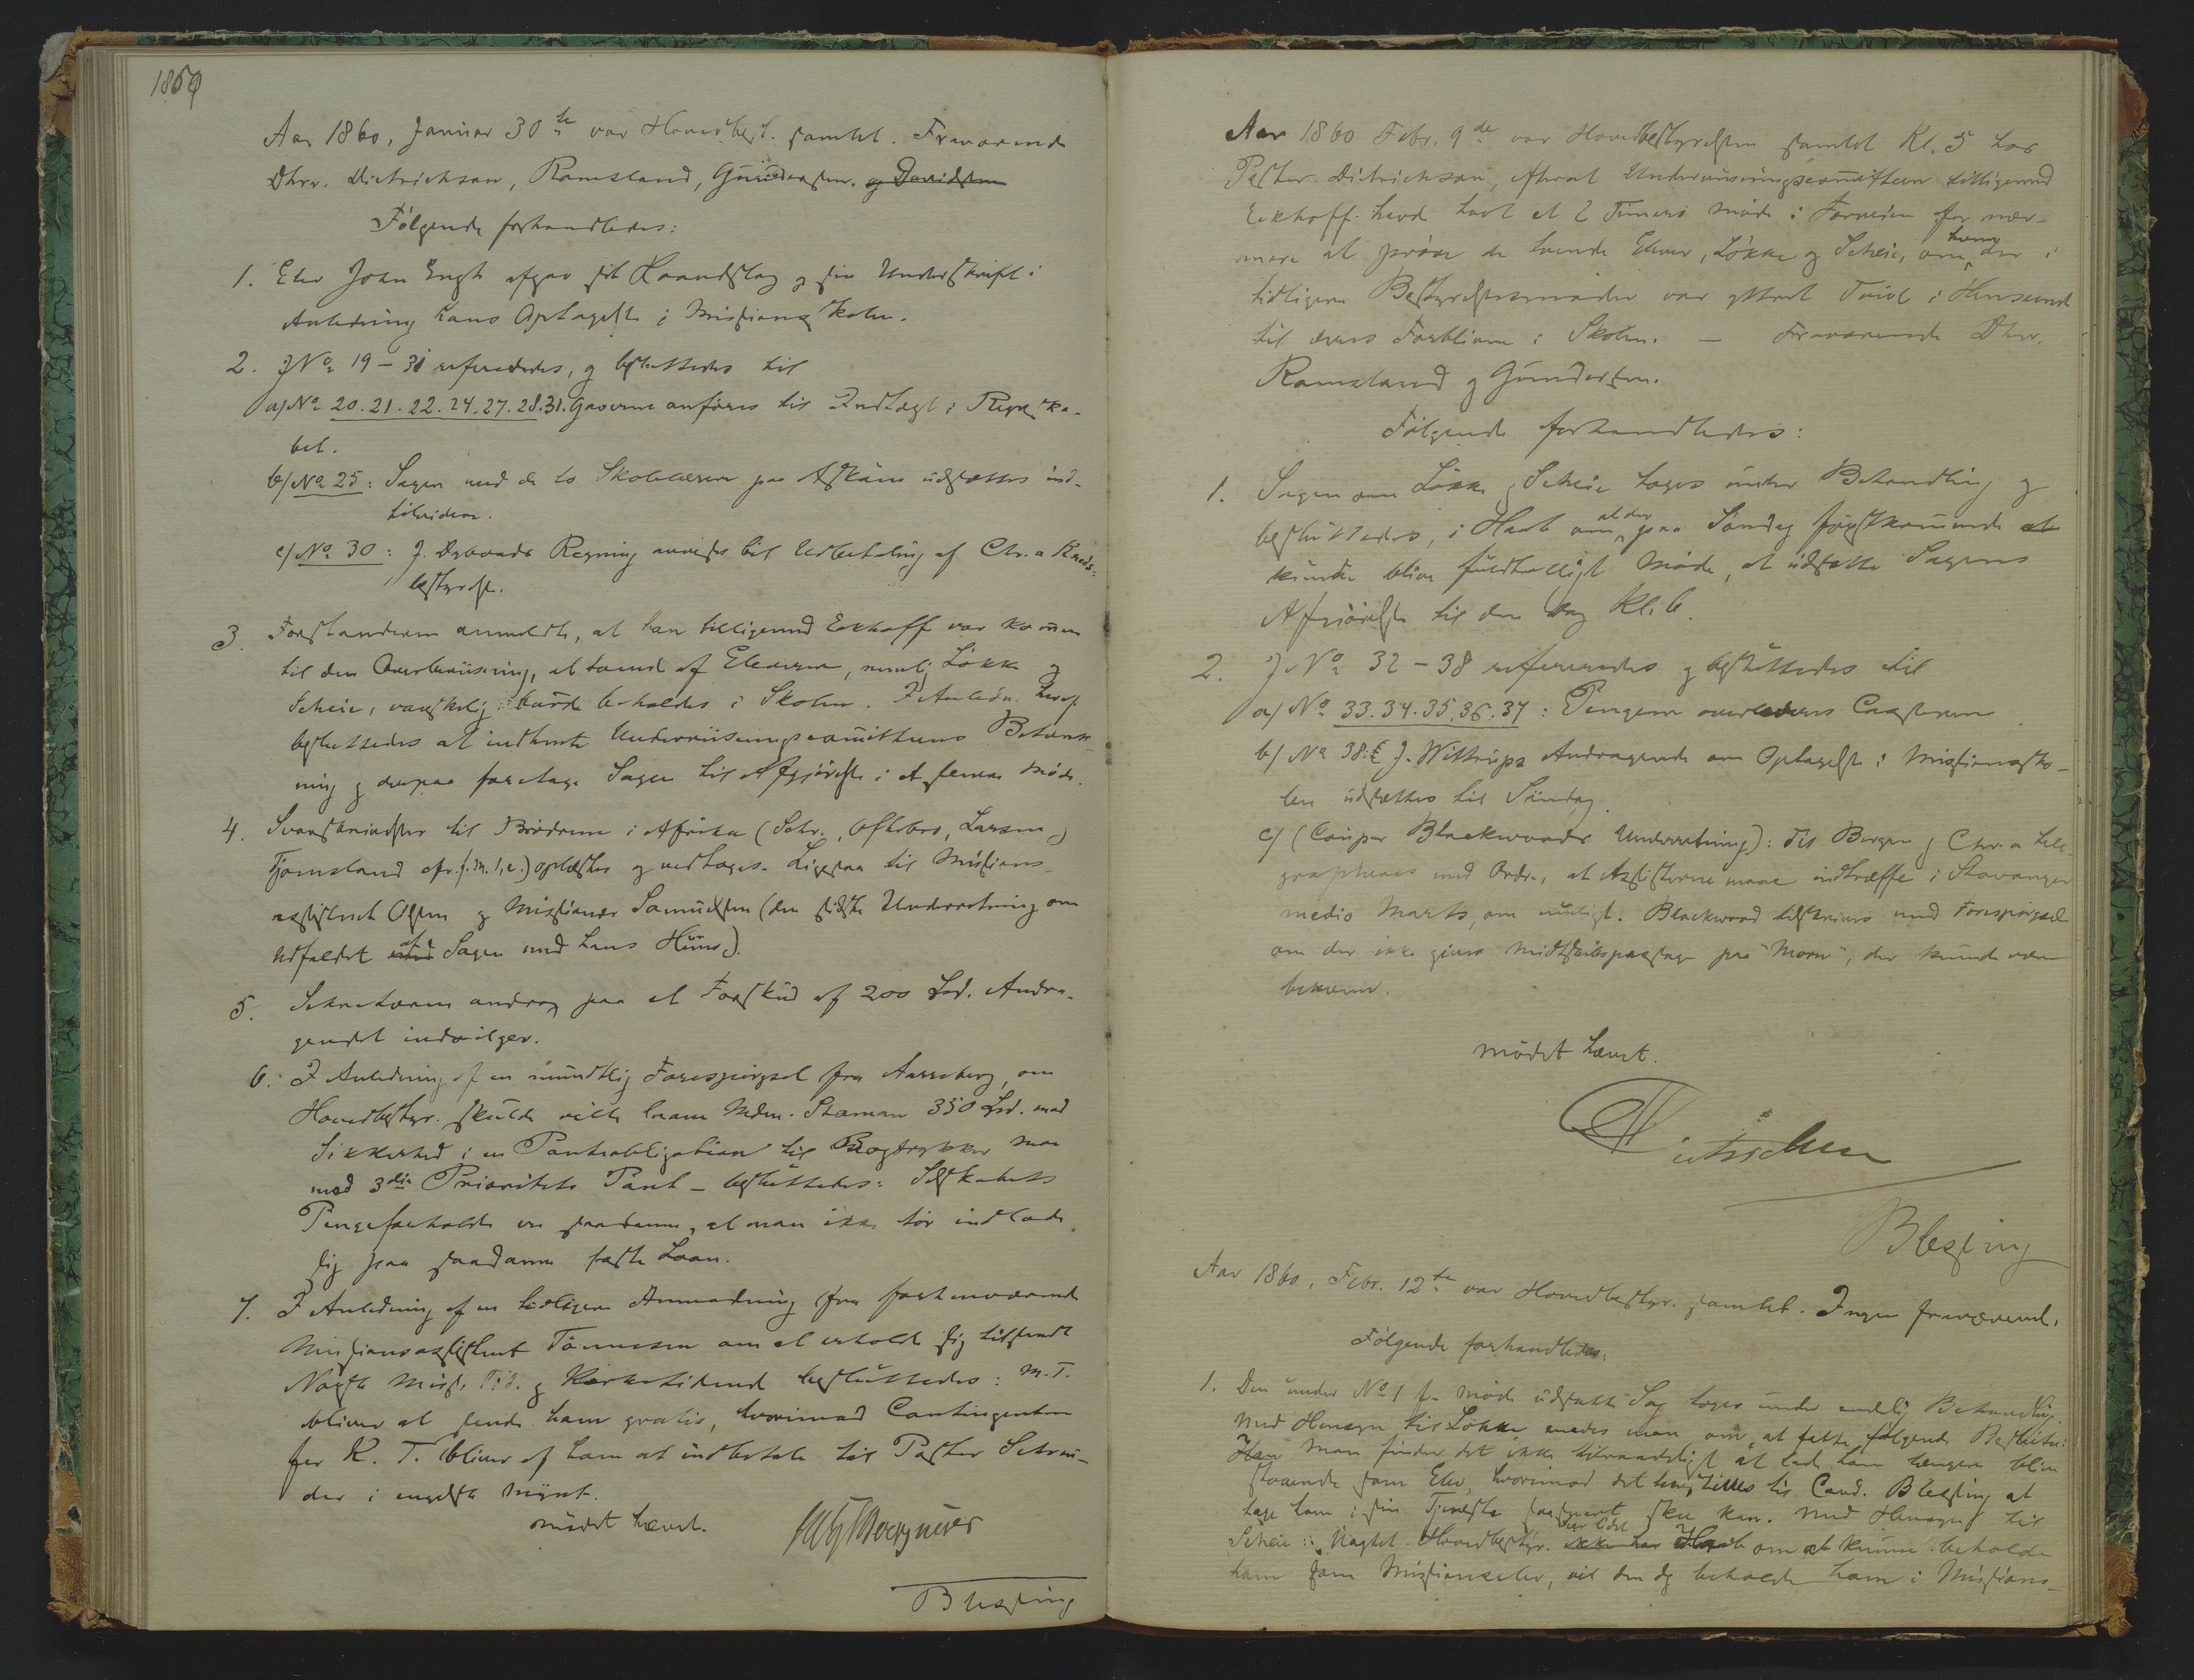 1859
Aar 1860, Januar 30te var Hovedbest. samlet. Fraværende
Dhrr. Dietrichson, Ramsland, Gundersen. og Davidsen
Følgende forhandledes:
1. Elev John Engh afgav sit Haandslag og sin Underskrift i
Anledning hans Optagelse i Missionsskolen.
2. J No 19 – 31 refereredes, og besluttedes til
a) No 20. 21. 22. 24. 27. 28. 31. Gaverne anføres til Indtægt i Regnska-
bet.
b) No 25: Sagen med de to Skolelærere paa Askøen udsættes ind-
til videre.
c) No 30: J. Regning anvises til Udbetaling af Chr.a Kreds-
bestyrelse.
3. Forstanderen anmeldte, at han tilligemed Eckhoff var kommen
til den Overbeviisning, at tvend af Eleverne, nemlig Løkke og
Scheie, vanskelig burde beholdes i Skolen. I Anledn. heraf
besluttedes at indhente Underviisningscomitteens Betænk-
ning og derpaa foretage Sagen til Afgjørelse i et senere Møde.
4. Svarskrivelser til Brødrene i Afrika (Schr., Oftebro, Larsen,
Tjomsland ofr. f. m. 1, e.) oplæstes og vedtoges. Ligesaa til Missions-
assistent Olsen og Missionær Samuelsen (den sidste Underretning om
Udfaldet med af Sagen med hans Huus).
5. Sekretæren androg paa et Forskud af 200 Spd. Andra-
gendet indvilges.
6. I Anledning af en mundtlig Forespørgsel fra Aarreberg, om
Hovedbestyr. skulde ville laane Mdm. Staman 350 Spd. mod
Sikkerhed i en Panteobligation til Bogtrykker
mod 3die Prioritets Pant – besluttedes: Selskabets
Pengeforholde ere saadanne, at man ikke tør indlade
sig paa saadanne faste Laan.
7. I Anledning af en tidligere Anmodning fra forhenværende
Missionsassistent Tønnesen om at erholde sig tilsendt
Norsk Miss. Tid. og Kirketidende besluttedes: M. T.
bliver at sende ham gratis, hvorimod Contingenten
for K. T. bliver af ham at indbetale til Pastor Schreu-
der i engelsk Mynt.
Mødet hævet.
Blessing
Aar 1860 Febr. 9de var Hovedbestyrelsen samlet Kl. 5 hos
Pastor Dietrichson, efterat Underviisningscomitteen tilligemed
Eckhoff havde havt et 2 Timers Møde i Forveien for nær-
mere at prøve de tvende Elever, Løkke og Scheie, om hvem der i
tidligere Bestyrelsesmøder var yttret Tvivl i Henseende
til deres Forbliven i Skolen. – Fraværende Dhrr.
Ramsland og Gundersen.
Følgende forhandledes:
1. Sagen om Løkke og Scheie toges under Behandling og
besluttedes, i Haab om at der paa Søndag førstkommende at
kunde blive fuldtalligt Møde, at udsætte Sagens
Afgjørelse til den Dag Kl. 6.
2. J No 32 – 38 refereredes og besluttedes til
a) No 33. 34. 35. 36. 37: Pengene overleveres Cassereren
b) No 38. J. Wittrups Andragende om Optagelse i Missionssko-
len udsættes til Søndag.
c) (Couper Blackwoods Underretning): Til Bergen og Chr.a tele-
grapheres med Ordre, at Assistenterne maae indtræffe i Stavanger
medio Marts, om muligt. Blackwood tilskrives med Forespørgsel
om der ikke gives Midtskibspassage paa "Moor", der kunde være
bekvem.
Mødet hævet.
Dietrichson
Blessing
Aar 1860, Febr. 12te var Hovedbestyr. samlet. Ingen fraværende.
Følgende forhandledes:
1. Den under No 1 f. Møde udsatte Sag toges under endelig Behandling.
Med Hensyn til Løkke enedes man om at fatte følgende Beslutn:
Man finder det ikke tilraadeligt at lade ham længere blive
staaende som Elev, hvorimod det henstilles til Cand. Blessing at
tage ham i sin Tjeneste saasnart skee kan. Med Hensyn til
Scheie: Uagtet Hovedbestyr. ikke har har lidet Haab om at kunne beholde
ham som Missionselev, vil den dog beholde ham i Missions-